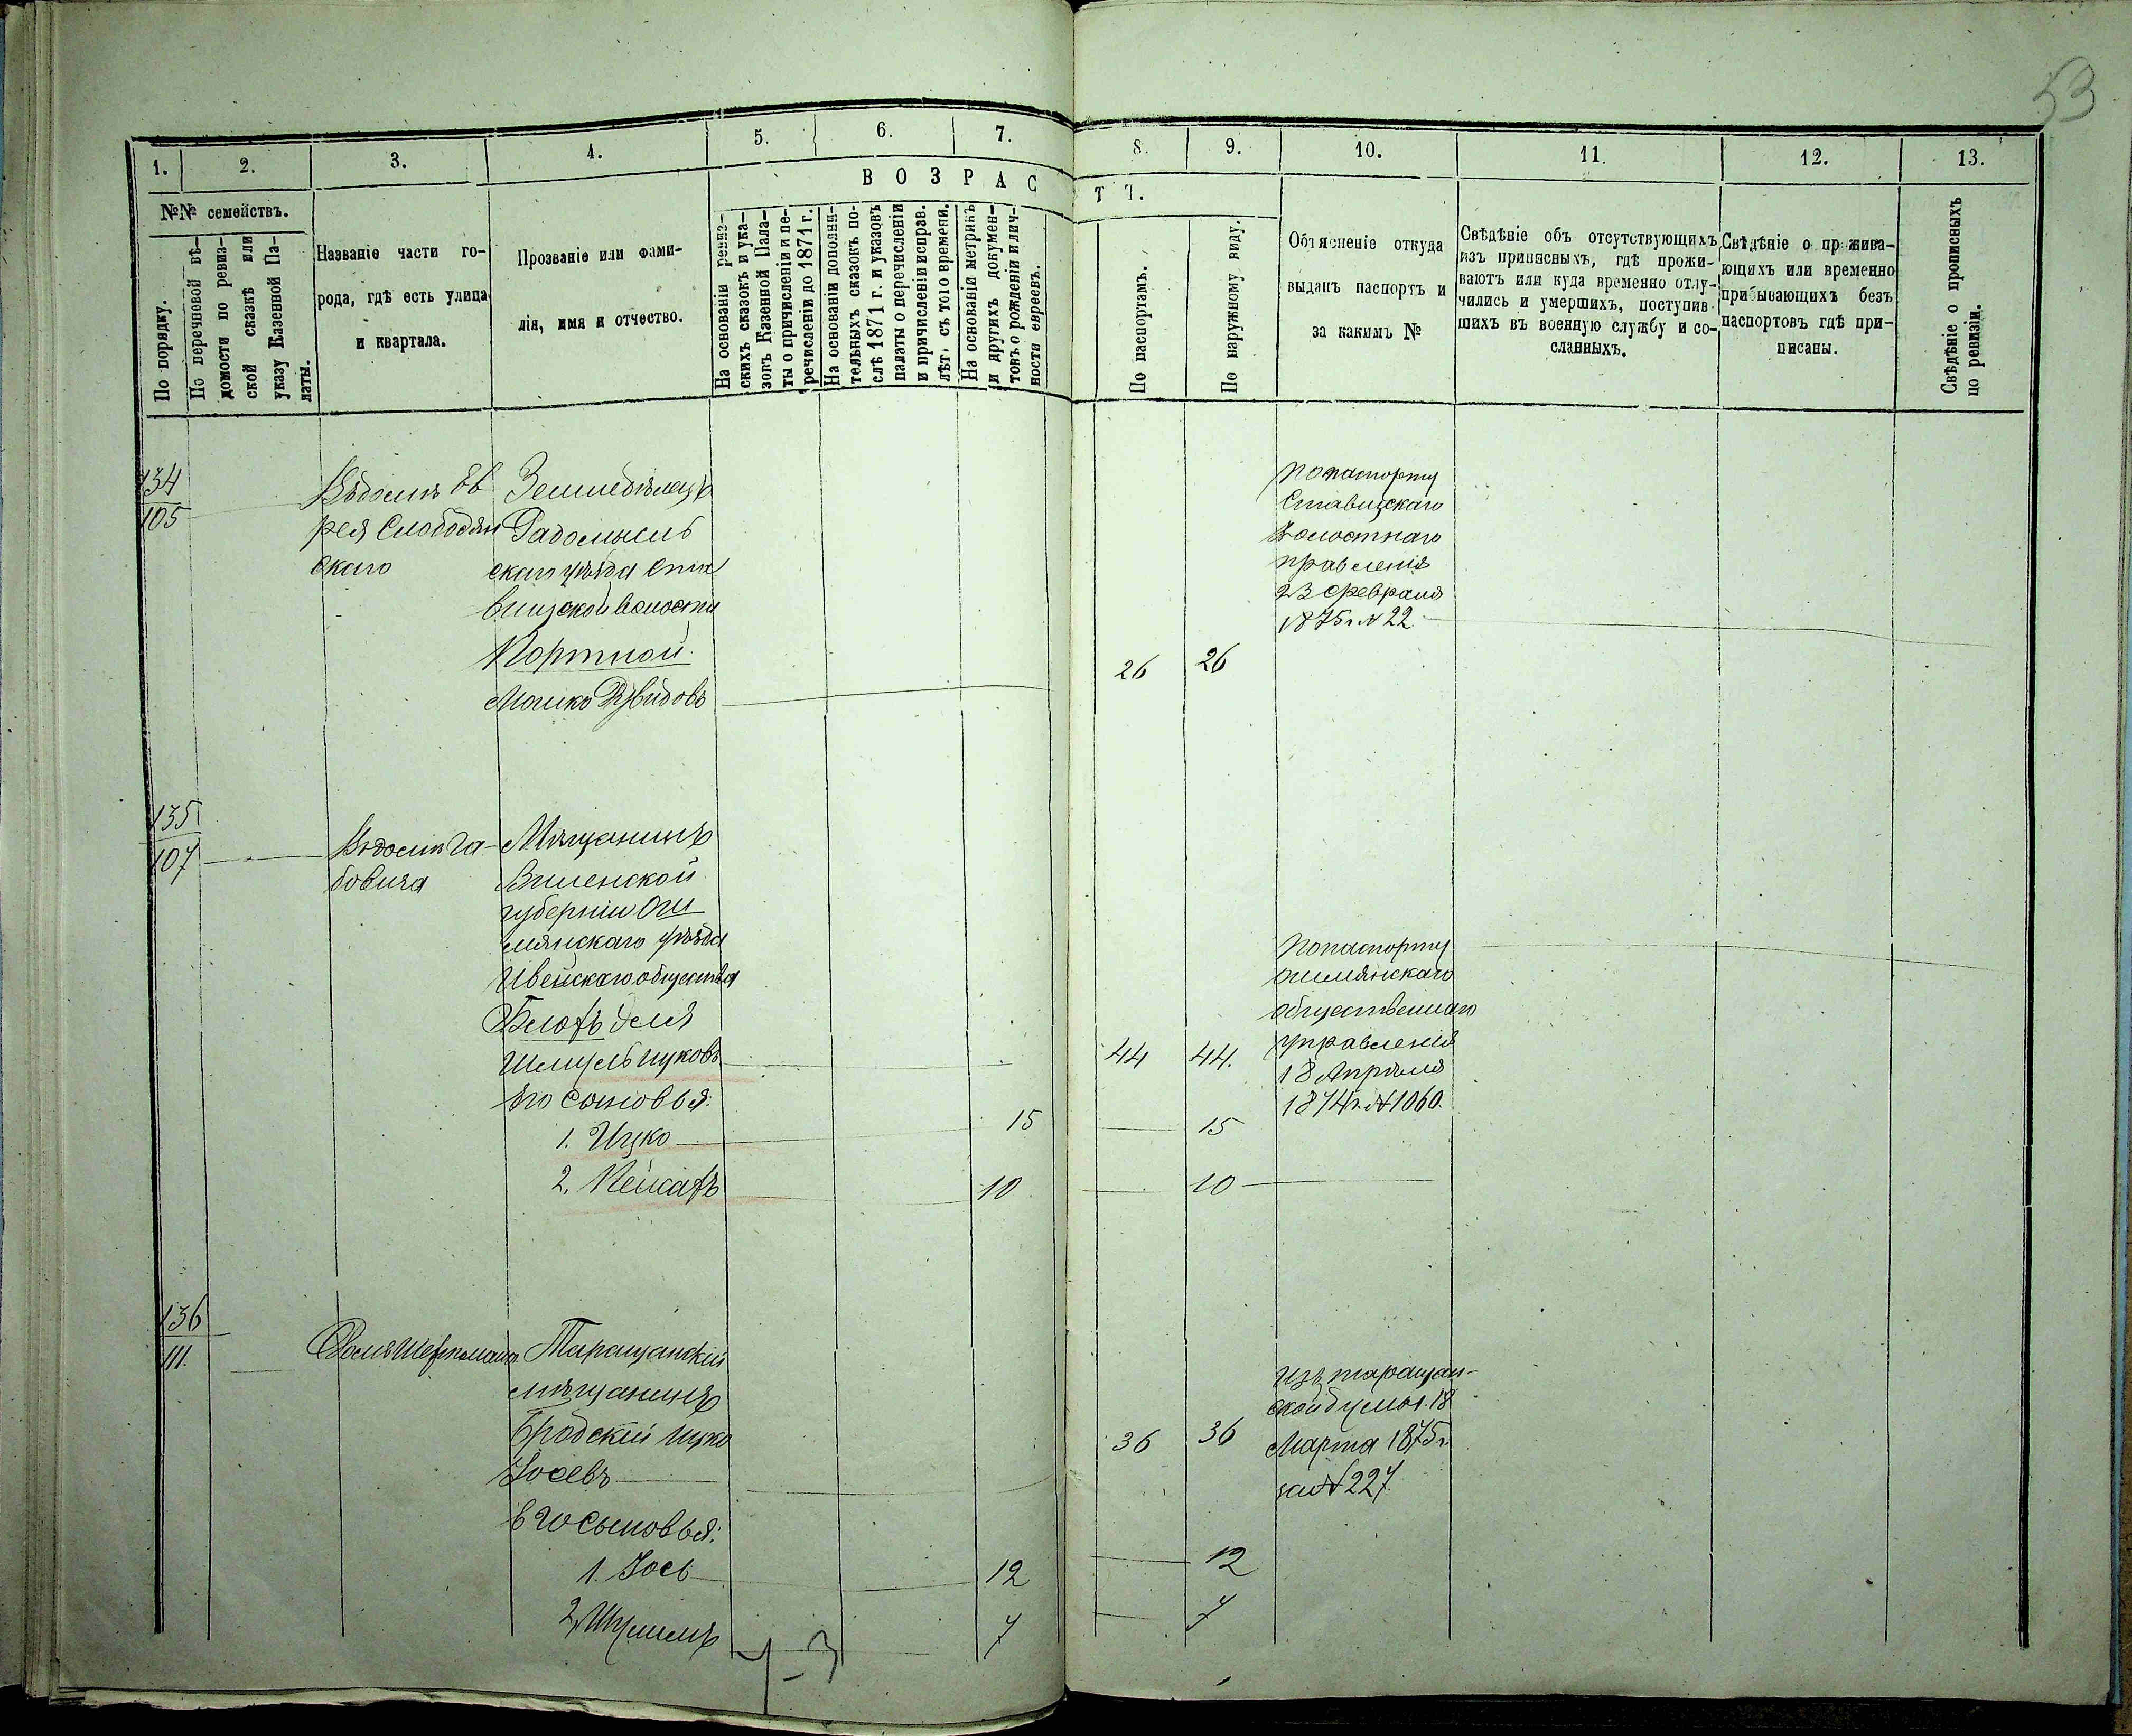 53
1. 2. 3. 4. 5. 6. 7. 8. 9. 10. 11. 12. 13.
ВОЗРАСТЪ.
№№ семействъ.
По порядку.
По перечневой вѣ-
домости по ревиз-
ской сказкѣ или
указу Казенной Па-
латы.
Названіе части го-
рода, гдѣ есть улица
и квартала.
Прозваніе или фами-
лія, имя и отчество.
На основаніи ревиз-
скихъ сказокъ и ука-
зовъ Казенной Пала-
ты о причисленіи и пе-
речисленіи до 1871 г.
На основаніи дополни-
тельныхъ сказокъ по-
слѣ 1871 г. и указовъ
палаты о перечисленіи
и причисленіи исправ.
лѣт. съ того времени.
На основаніи метрикъ
и другихъ докумен-
товъ о рожденіи и лич-
ности евреевъ.
По паспортамъ.
По наружному виду.
Объясненіе откуда
выданъ паспортъ и
за какимъ №
Свѣдѣніе объ отсутствующихъ
изъ приписныхъ, гдѣ прожи-
ваютъ или куда временно отлу-
чились и умершихъ, поступив-
шихъ въ военную службу и со-
сланныхъ.
Свѣдѣніе о прожива-
ющихъ или временно
прибывающихъ безъ
паспортовъ гдѣ при-
писаны.
Свѣдѣніе о прописныхъ
по ревизіи.
134
105
Въ домѣ Ев
рея Слободян
скаго
Земледѣлецъ
Радомысль
скаго уѣзда Ста
вищской волости
Портной.
Мошко Дувидовъ
26 26
По паспорту
Ставищскаго
Волостнаго
правленія
23 Февраля
1875 г. № 22.
135
107
Въ домѣ Га-
бовича
Мѣщанинъ
Виленской
губерніи Ош
мянскаго уѣзда
Ивейскаго общества
Блохъ Еля
Шмуль Ицковъ
44 44.
По паспорту
ошмянскаго
общественнаго
управленія
18 Апрѣля
1874 г. № 1060.
Его сыновья:
1. Ицко 15 15
2. Пейсахъ 10 10
136
111.
Таращанскій
мѣщанинъ
Бродскій Ицко
Іосевъ
36 36
Изъ таращан-
ской думы 18
Марта 1875 г.
за № 227.
Его сыновья:
1. Іось 12 12
2. 7 7